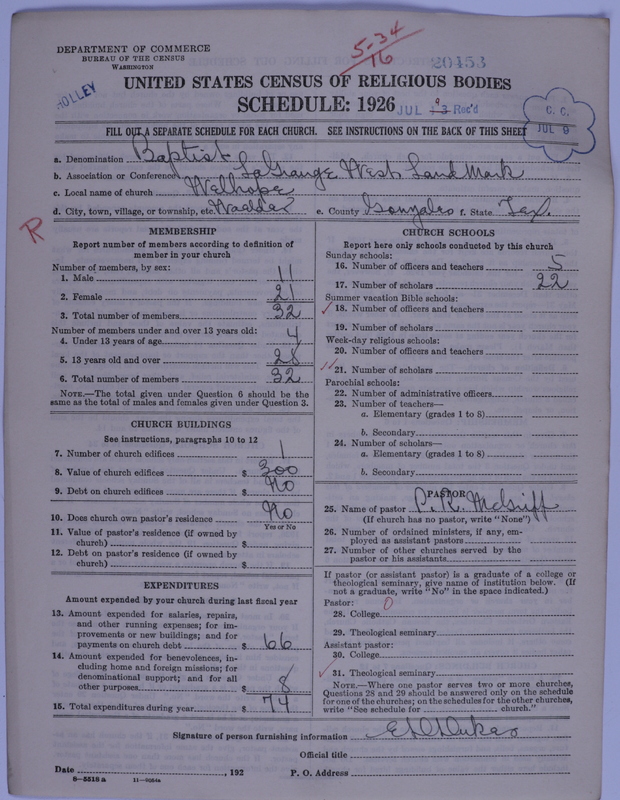 DEPARTMENT OF COMMERCE
BUREAU OF THE CENSUS
WASHINGTON
5-34
16
20453
HOLLEY
UNITED STATES CENSUS OF RELIGIOUS BODIES
SCHEDULE: 1926
JUL 13 Rec'd
9
C. C.
JUL 9
FILL OUT A SEPARATE SCHEDULE FOR EACH CHURCH. SEE INSTRUCTIONS ON THE BACK OF THIS SHEET
a. Denomination Baptist
b. Association or Conference LaGrange West Land Mark
c. Local name of church Welhope
d. City, town, village, or township, etc. Waelder e. County Gonzales f. State Tex.
R
MEMBERSHIP
Report number of members according to definition of
member in your church
Number of members, by sex:
1. Male 11
2. Female 21
3. Total number of members 32
Number of members under and over 13 years old:
4. Under 13 years of age 4
5. 13 years old and over 28
6. Total number of members 32
NOTE.—The total given under Question 6 should be the
same as the total of males and females given under Question 3.
CHURCH BUILDINGS
See instructions, paragraphs 10 to 12
7. Number of church edifices 1
8. Value of church edifices $ 300
9. Debt on church edifices $ No
10. Does church own pastor's residence No
Yes or No
11. Value of pastor's residence (if owned by
church) $
12. Debt on pastor's residence (if owned by
church) $
EXPENDITURES
Amount expended by your church during last fiscal year
13. Amount expended for salaries, repairs,
and other running expenses; for im-
provements or new buildings; and for
payments on church debt $ 66
14. Amount expended for benevolences, in-
cluding home and foreign missions; for
denominational support; and for all
other purposes $ 8
15. Total expenditures during year $ 74
CHURCH SCHOOLS
Report here only schools conducted by this church
Sunday schools:
16. Number of officers and teachers 5
17. Number of scholars 22
Summer vacation Bible schools:
18. Number of officers and teachers
19. Number of scholars
Week-day religious schools:
20. Number of officers and teachers
21. Number of scholars
Parochial schools:
22. Number of administrative officers
23. Number of teachers—
a. Elementary (grades 1 to 8)
b. Secondary
24. Number of scholars—
a. Elementary (grades 1 to 8)
b. Secondary
PASTOR
25. Name of pastor P. R. McGriff
(If church has no pastor, write "None")
26. Number of ordained ministers, if any, em-
ployed as assistant pastors
27. Number of other churches served by the
pastor or his assistants
If pastor (or assistant pastor) is a graduate of a college or
theological seminary, give name of institution below. (If
not a graduate, write "No" in the space indicated.)
Pastor: 0
28. College
29. Theological seminary
Assistant pastor:
30. College
31. Theological seminary
NOTE.—Where one pastor serves two or more churches,
Questions 28 and 29 should be answered only on the schedule
for one of the churches; on the schedules for the other churches,
write "See schedule for church."
Signature of person furnishing information Dukes
Official title
Date , 192 P. O. Address
8-5518 a 11-9054a